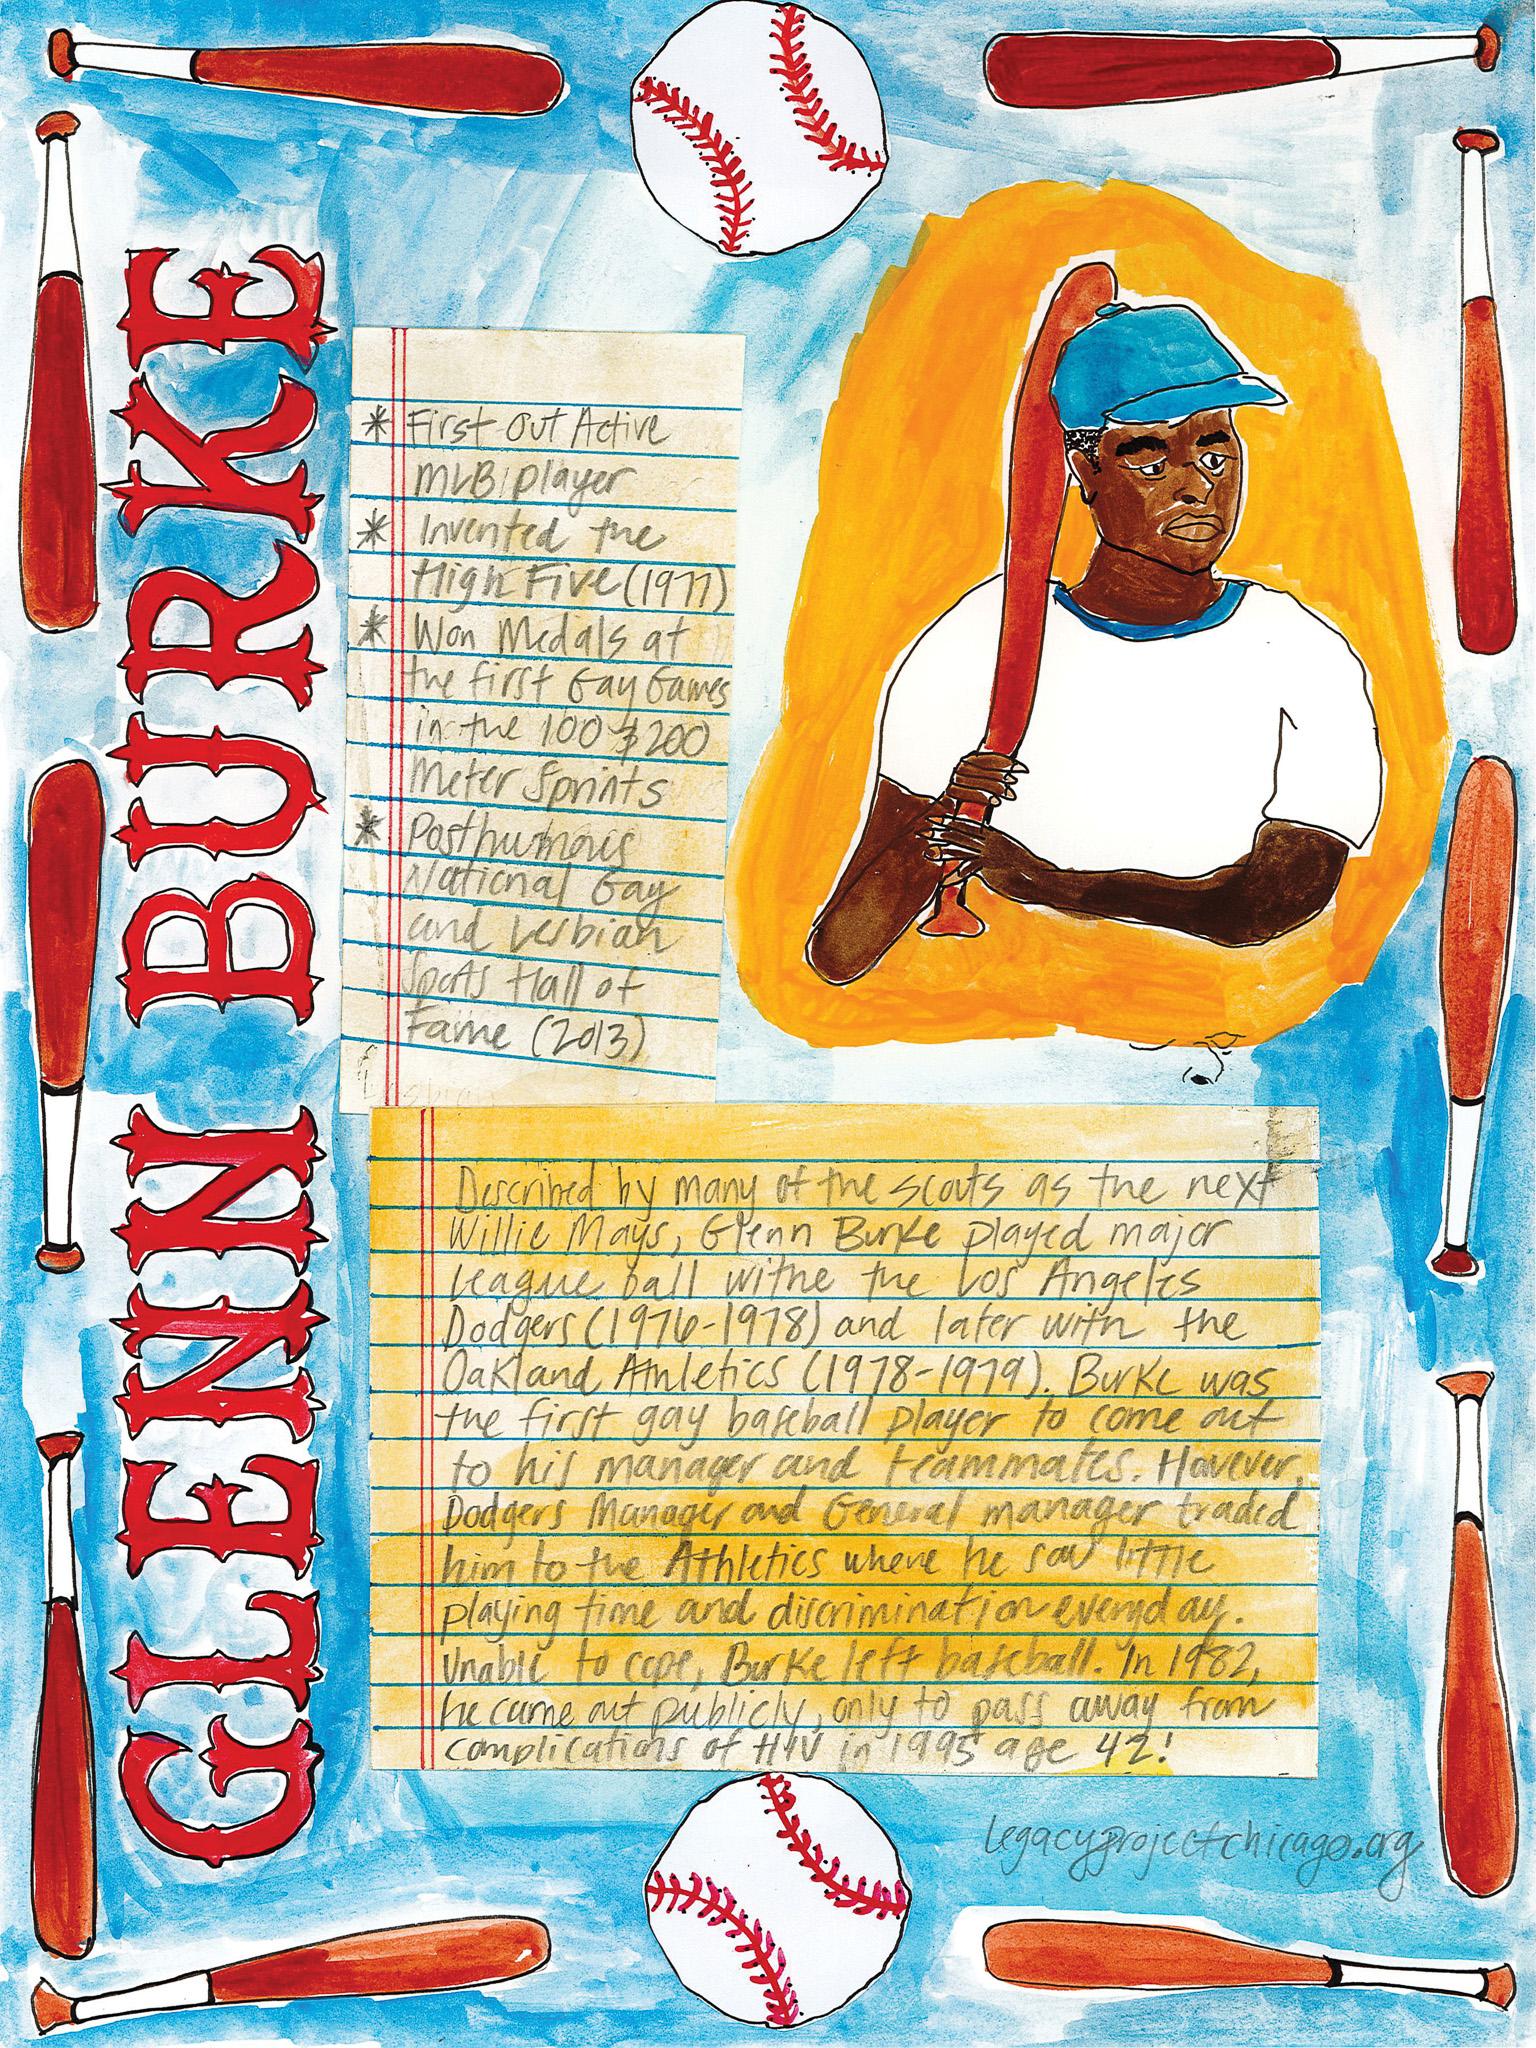 GLENN BURKE
* First Out Active
MLB player
* Invented the
High Five (1977)
* Won Medals at
the first Gay Games
in the 100 & 200
Meter Sprints
* Posthumous
National Gay
and Lesbian
Sports Hall of
Fame (2013)
Described by many of the scouts as the next
Willie Mays, Glenn Burke played major
league ball withe the Los Angeles
Dodgers (1976-1978) and later with the
Oakland Athletics (1978-1979). Burke was
the first gay baseball player to come out
to his manager and teammates. However,
Dodgers Manager and General manager traded
him to the Athletics where he saw little
playing time and discrimination everyday.
Unable to cope, Burke left baseball. In 1982,
he came out publicly, only to pass away from
complications of HIV in 1995 age 42!
legacyprojectchicago.org